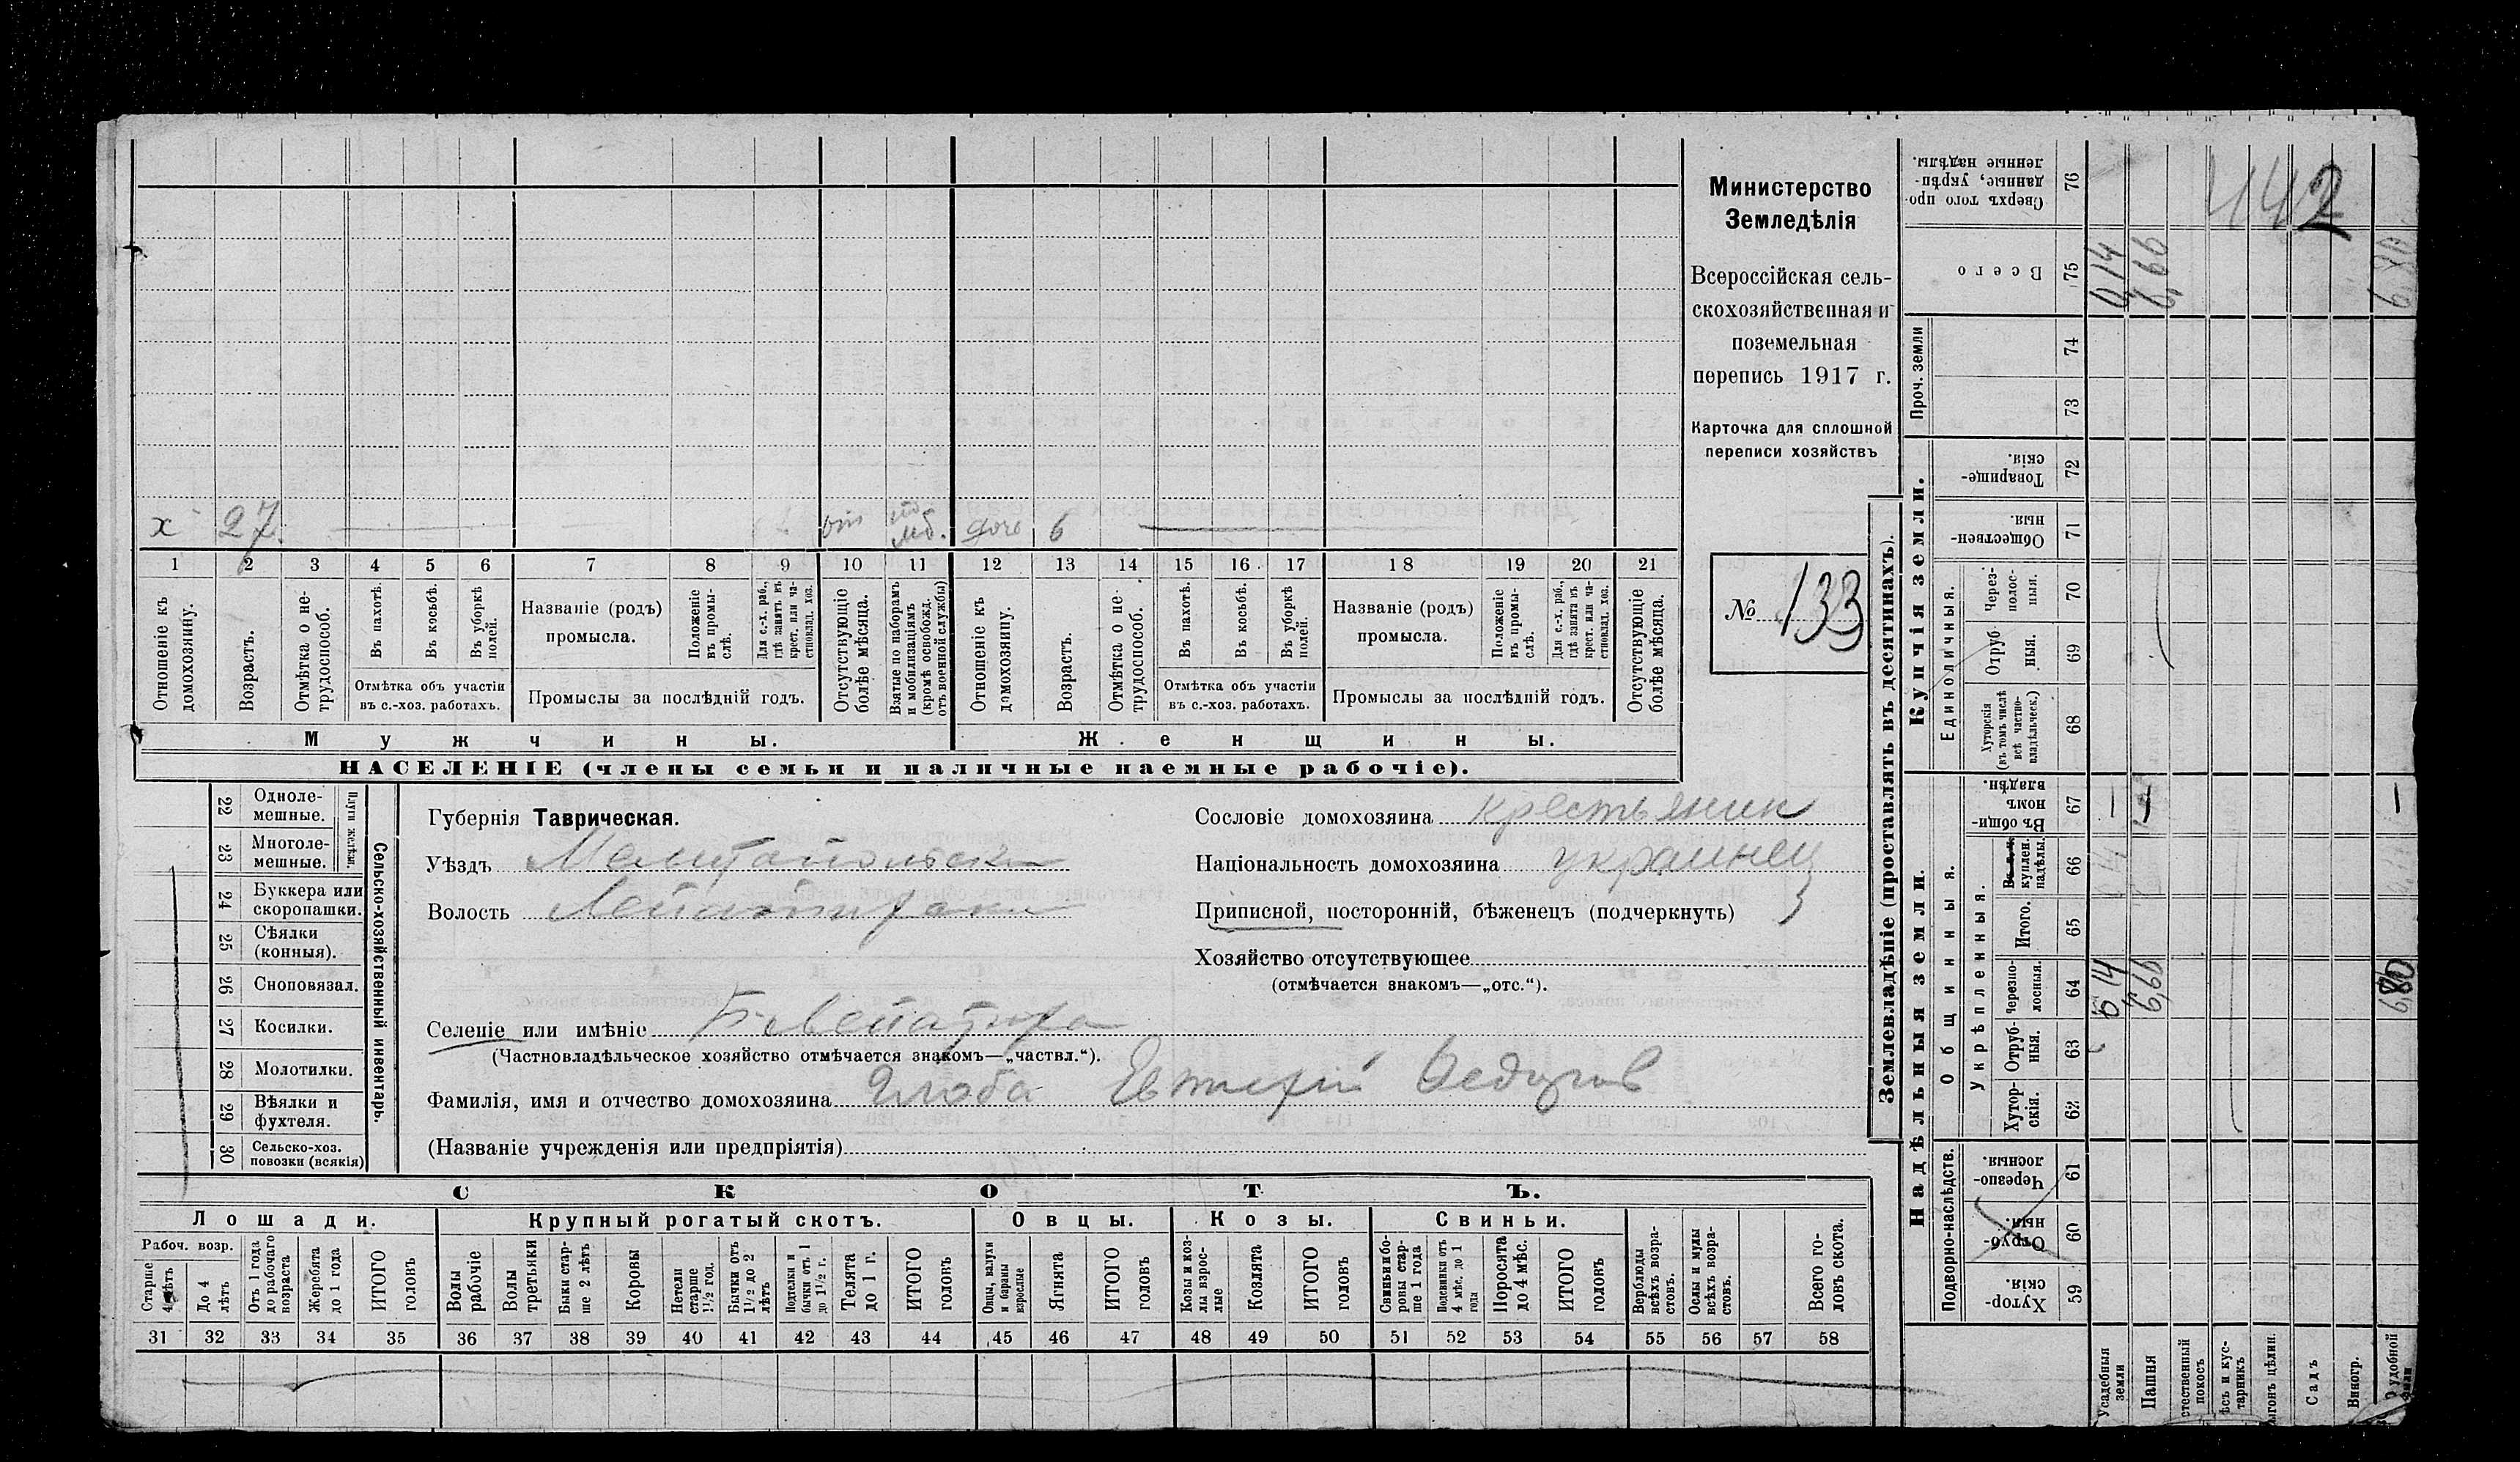 х 27. дочь 6
1 2 3 4 5 6 7 8 9 10 11 12 13 14 15 16 17 18 19 20 21
Отношеніе къ домохозяину.
Возрастъ.
Отмѣтка о не-
трудоспособ.
Въ пахотѣ.
Въ косьбѣ.
Въ уборкѣ полей.
Отмѣтка объ участіи
въ с.-хоз. работахъ.
Названіе (родъ)
промысла.
Положеніе
въ промы-
слѣ.
Для с.-х. раб.,
гдѣ занятъ въ
крест. или ча-
стновлад. хоз.
Промыслы за послѣдній годъ.
Отсутствующіе
болѣе мѣсяца.
Взятые по наборамъ
и мобилизаціямъ
(кромѣ освобожд.
отъ военной службы)
Отношеніе къ
домохозяину.
Возрастъ.
Отмѣтка о не-
трудоспособ.
Въ пахотѣ.
Въ косьбѣ.
Въ уборкѣ полей.
Отмѣтка объ участіи
въ с.-хоз. работахъ.
Названіе (родъ)
промысла.
Положеніе
въ промы-
слѣ.
Для с.-х. раб.,
гдѣ занята въ
крест. или ча-
стновлад. хоз.
Промыслы за послѣдній годъ.
Отсутствующіе
болѣе мѣсяца.
Мужчины.
Женщины.
НАСЕЛЕНІЕ (члены семьи и наличные наемные рабочіе).
Министерство
Земледѣлія
Всероссійская сель-
скохозяйственная и
поземельная
перепись 1917 г.
Карточка для сплошной
переписи хозяйствъ
№ 133
22 Одноле-
мешные.
23 Многоле-
мешные.
Плуги желѣзн.
24 Буккера или
скоропашки.
25 Сѣялки
(конныя).
26 Сноповязал.
27 Косилки.
28 Молотилки.
29 Вѣялки и
фухтеля.
30 Сельско-хоз.
повозки (всякія)
Сельско-хозяйственный инвентарь.
Губернія Таврическая.
Уѣздъ Мелитопольск
Волость
Селеніе или имѣніе
(Частновладѣльческое хозяйство отмѣчается знакомъ—„частвл.“).
Фамилія, имя и отчество домохозяина Глоба Евтихій Федоров
(Названіе учрежденія или предпріятія)
Сословіе домохозяина крестьянин
Національность домохозяина украинец
Приписной, посторонній, бѣженецъ (подчеркнуть)
Хозяйство отсутствующее
(отмѣчается знакомъ—„отс.“).
СКОТЪ.
Лошади.
Рабоч. возр.
Старше
4 лѣтъ
До 4
лѣтъ
Отъ 1 года
до рабочаго
возраста
Жеребята
до 1 года
ИТОГО
головъ
Крупный рогатый скотъ.
Волы
рабочіе
Волы
третьяки
Быки стар-
ше 2 лѣтъ
Коровы
Нетели
старше
1½ год.
Бычки отъ
1½ до 2
лѣтъ
Подтелки и
бычки отъ 1
до 1½ г.
Телята
до 1 г.
ИТОГО
головъ
Овцы.
Овцы, валухи
и бараны
взрослые
Ягнята
ИТОГО
головъ
Козы.
Козы и коз-
лы взрос-
лые
Козлята
ИТОГО
головъ
Свиньи.
Свиньи и бо-
ровы стар-
ше 1 года
Подсвинки отъ
4 мѣс. до 1
года
Поросята
до 4 мѣс.
ИТОГО
головъ
Верблюды
всѣхъ возра-
стовъ.
Ослы и мулы
всѣхъ возра-
стовъ.
Всего го-
ловъ скота.
31 32 33 34 35 36 37 38 39 40 41 42 43 44 45 46 47 48 49 50 51 52 53 54 55 56 57 58
Землевладѣніе (проставлять въ десятинахъ).
Купчія земли.
Надѣльныя земли.
Сверхъ того про-
данные, укрѣп-
ленные надѣлы.
76
442
Всего
75
0,14
6,66
Проч. земли
74
73
Товарище-
скія.
72
Обществен-
ныя.
71
Единоличныя.
Через-
полос-
ныя.
70
Отруб-
ныя.
69
Хуторскія
(въ томъ числѣ
всѣ частно-
владѣльческ.)
68
Общинныя.
Въ общи-
номъ
владѣн.
67
Укрѣпленныя.
куплен.
надѣлы.
66
Итого.
65
Черезпо-
лосныя.
64
0,14
6,66
6,80
Отруб-
ныя.
63
Хутор-
скія.
62
Подворно-наслѣдств.
Черезпо-
лосныя.
61
Отруб-
ныя.
60
Хутор-
скія.
59
Усадебныя
земли
Пашня
стественный
покосъ
ѣсъ и кус-
тарникъ
ыгонъ цѣлин.
Садъ
Виногр.
удобной